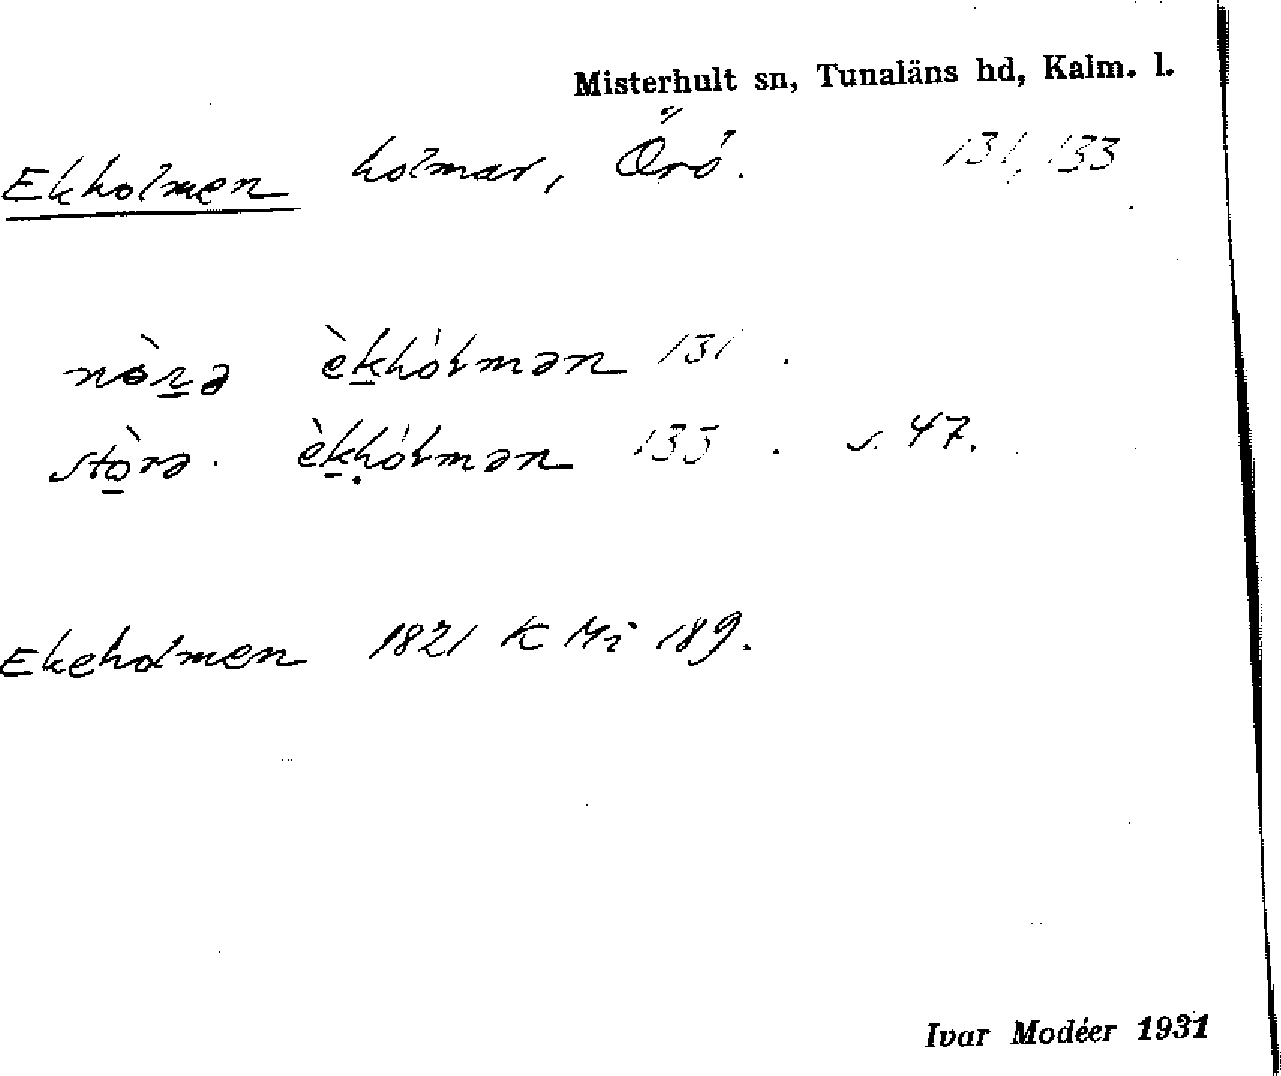 Misterhult sn, Tunaläns hd, Kalm. l.
Ekholmen holmar, Örö. 131, 133
nòrə èkhólmən 131.
stòrə èkhólmən 133. s. 47.
Ekeholmen 1821 K Mi 189.
Ivar Modéer 1931